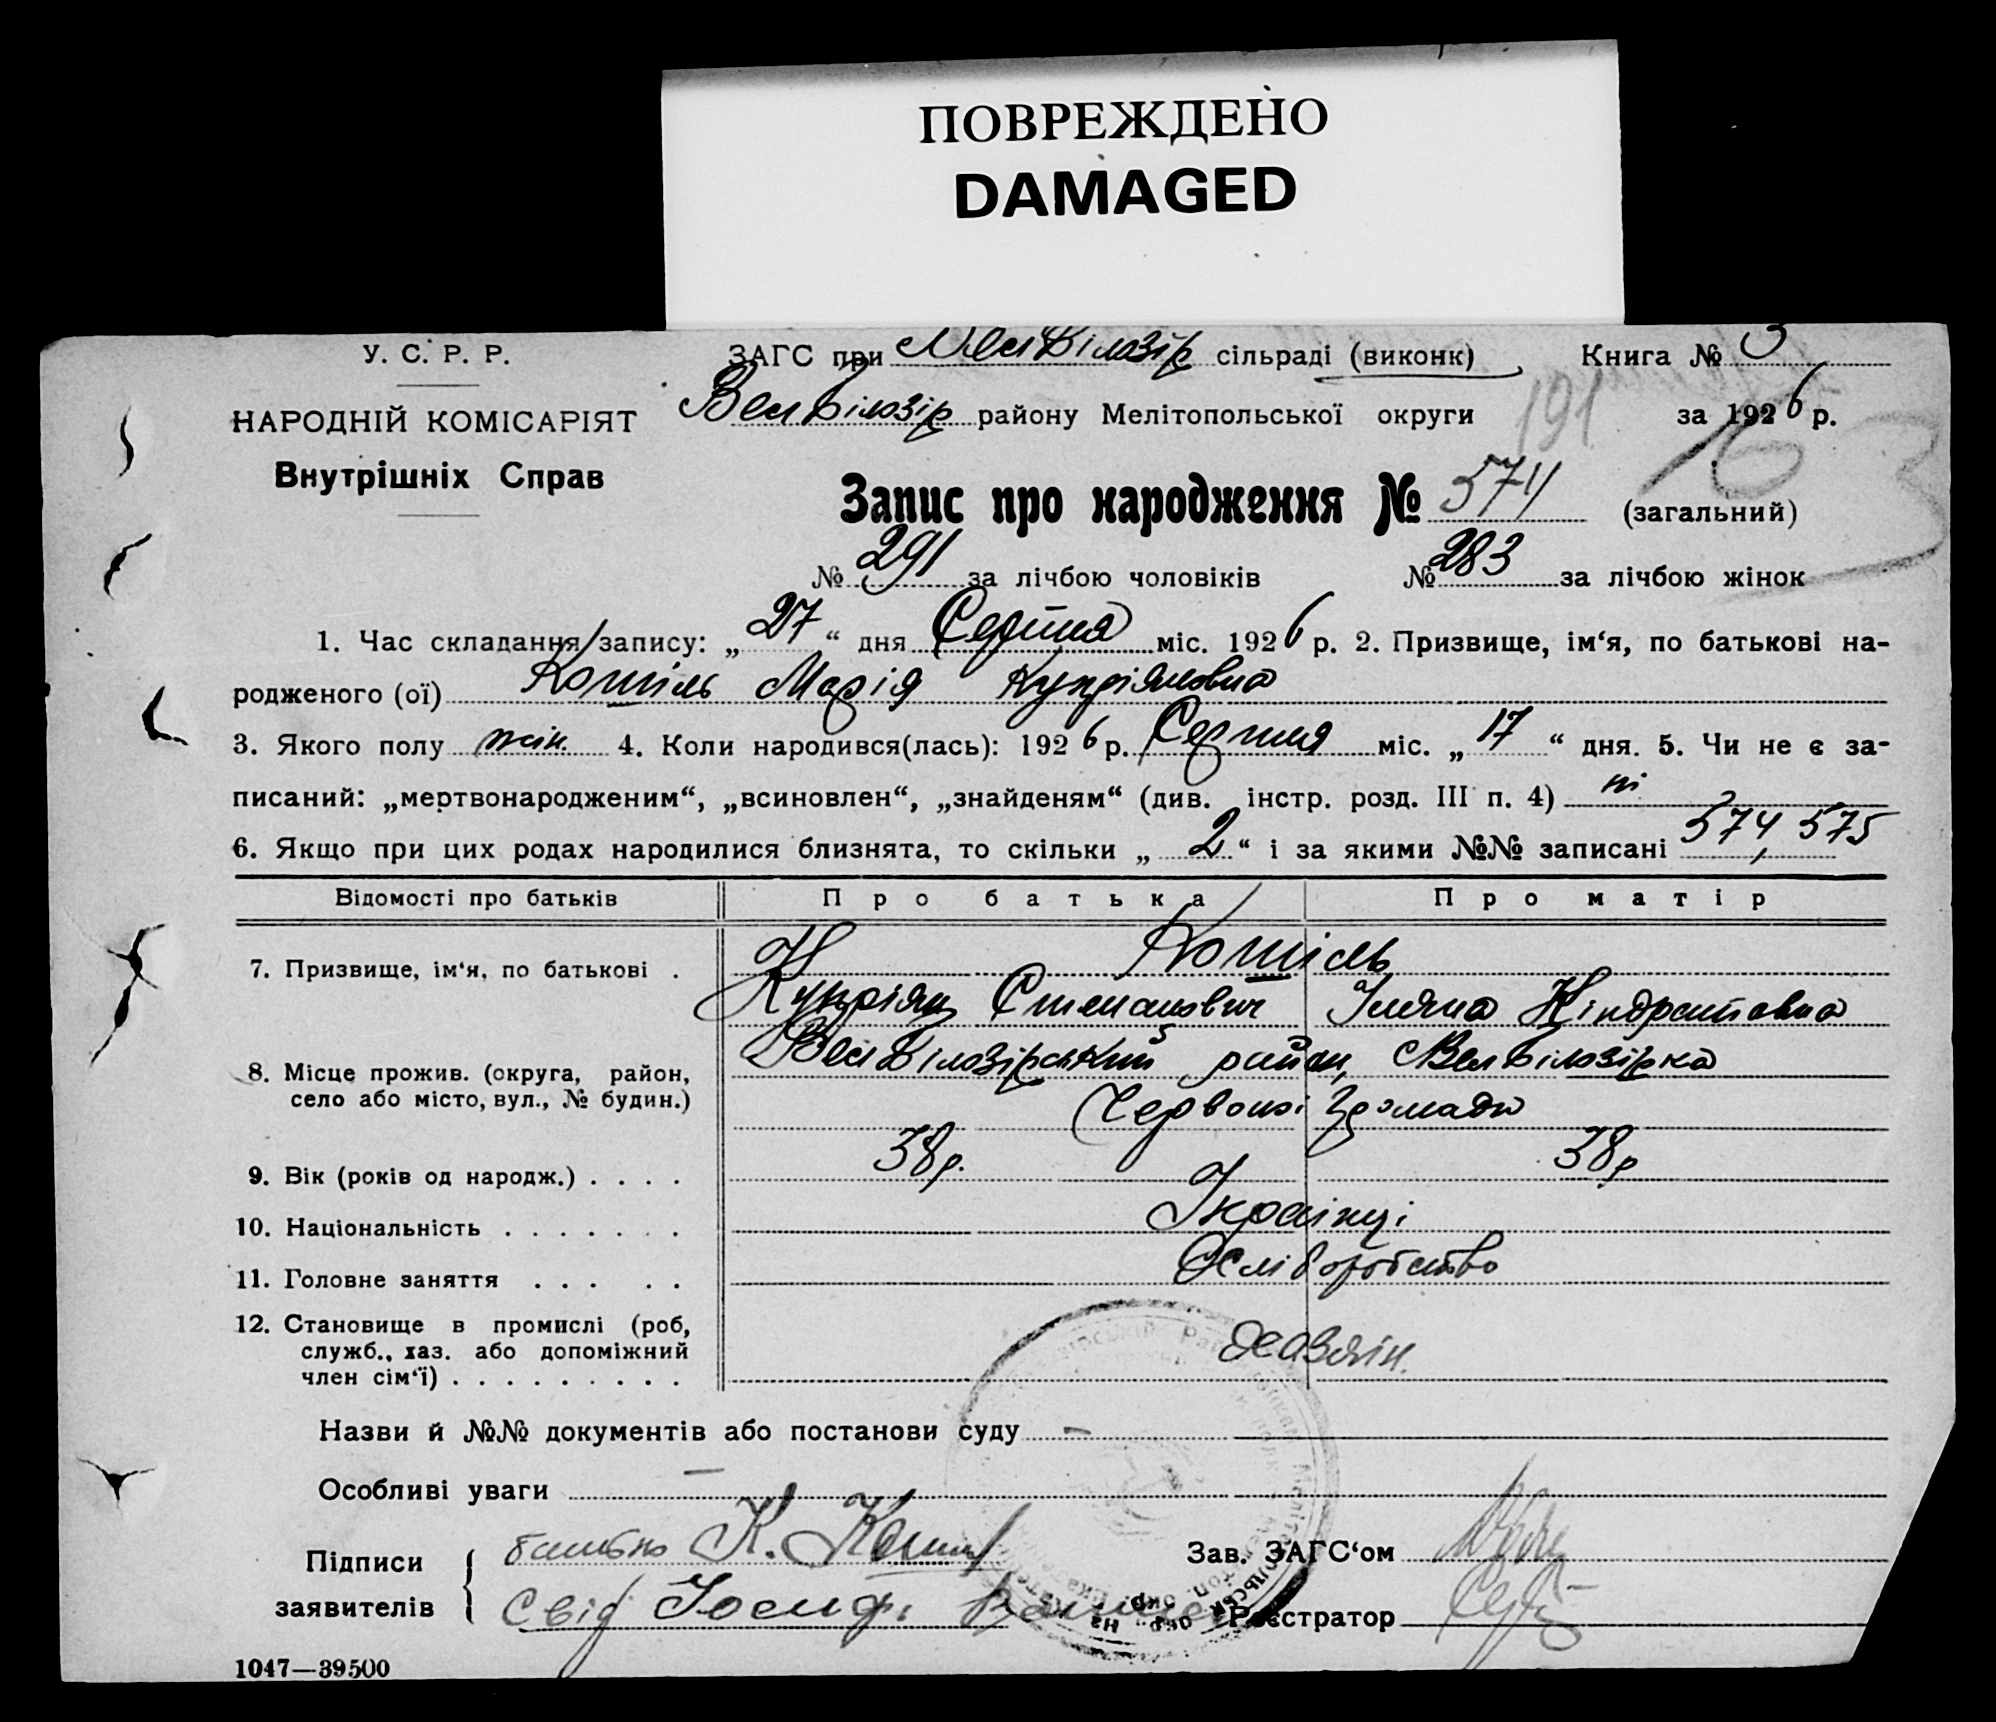 ПОВРЕЖДЕНО
DAMAGED
У. С. Р. Р.
НАРОДНІЙ КОМІСАРІЯТ
Внутрішніх Справ
ЗАГС при ВелБілозір сільраді (виконк) Книга № 3
ВелБілозір району Мелітопольської округи 191 за 1926 р.
Запис про народження № 574 (загальний)
№ 291 за лічбою чоловіків № 283 за лічбою жінок
1. Час складання запису: „27“ дня Серпня міс. 1926 р. 2. Призвище, ім‘я, по батькові на-
родженого (ої) Котіль Марія Купріяновна
3. Якого полу жін. 4. Коли народився(лась): 1926 р. Серпня міс. „17“ дня. 5. Чи не є за-
писаний: „мертвонародженим“, „всиновлен“, „знайденям“ (див. інстр. розд. III п. 4) ні
6. Якщо при цих родах народилися близнята, то скільки „2“ і за якими №№ записані 574, 575
Відомості про батьків Про батька Про матір
7. Призвище, ім‘я, по батькові . Котіль
Купріян Степанович Уляна Кіндратовна
8. Місце прожив. (округа, район, село або місто, вул., № будин.) ВелБілозірський район, ВелБілозірка
Червоної Громади
9. Вік (років од народж.) . . . . 38 р. 38 р
10. Національність . . . . . . . Українці
11. Головне заняття . . . . . Хліборобство
12. Становище в промислі (роб,
служб., хаз. або допоміжний
член сім‘ї) . . . . . . . . . Хазяїн.
Назви й №№ документів або постанови суду –
Особливі уваги –
Підписи заявителів
батько К. Котіль
Свід Йосиф
Зав. ЗАГС‘ом
Реєстратор
1047—39500